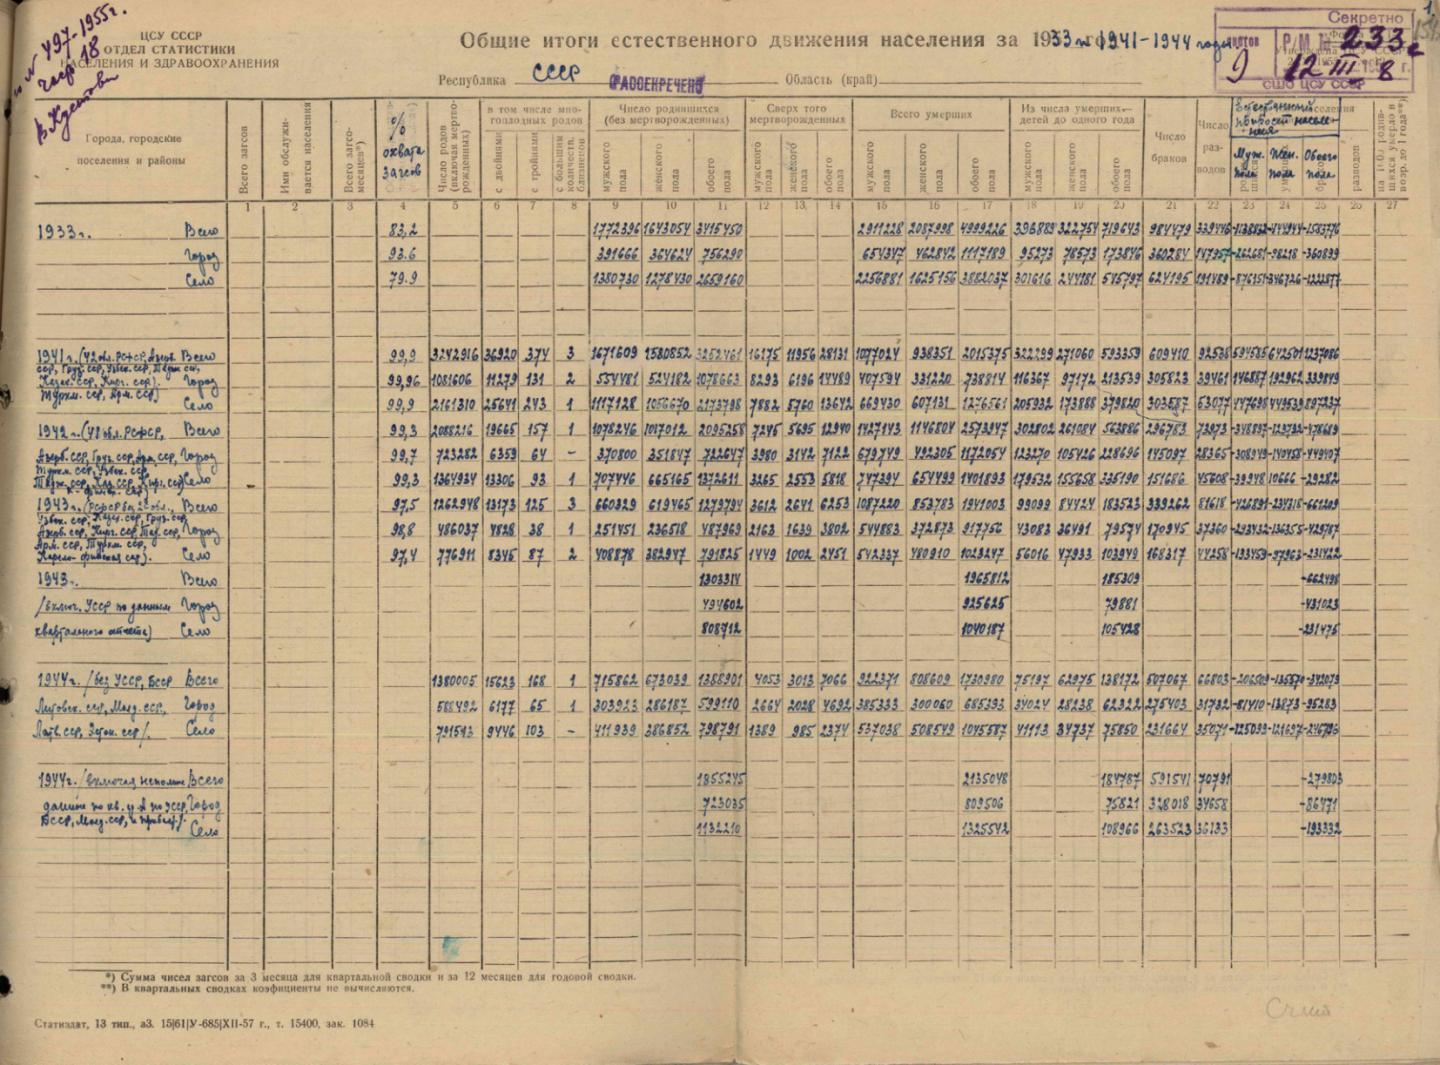 ЦСУ СССР
ОТДЕЛ СТАТИСТИКИ
НАСЕЛЕНИЯ И ЗДРАВООХРАНЕНИЯ
№ 497-1955г.
Общие итоги естественного движения населения за 1933 и 1941-1944 годы
Секретно
Р/М № 233с
9
12 III 8
СШО ЦСУ СССР
Республика СССР РАССЕКРЕЧЕНО Область (край)
Города, городские поселения и районы
Всего загсов
Ими обслуживается населения
Всего загсо-месяцев*)
% охвата загсов
Число родов (включая мертворожденных)
в том числе многоплодных родов
с двойнями
с тройнями
с большим количеств. близнецов
Число родившихся (без мертворожденных)
мужского пола
женского пола
обоего пола
Сверх того мертворожденных
мужского пола
женского пола
обоего пола
Всего умерших
мужского пола
женского пола
обоего пола
Из числа умерших—детей до одного года
мужского пола
женского пола
обоего пола
Число браков
Число разводов
Естественный прирост населения
Муж. пола
Жен. пола
Обоего пола
разводов
1 2 3 4 5 6 7 8 9 10 11 12 13 14 15 16 17 18 19 20 21 22 23 24 25 26 27
1933г. Всего 83,2 1772396 1643054 3415450 2911228 2087998 4999226 396889 322754 719643 984479 339446 -1138832 -444944 -1583776
Город 93.6 391666 364624 756290 654347 462842 1117189 95273 78573 173846 360284 147957 -262681 -98218 -360899
Село 79.9 1380730 1278430 2659160 2256881 1625156 3882037 301616 244181 545797 624195 191489 -876151 -346726 -1222877
1941г. (42 обл. РСФСР, Азерб. Всего 99,9 3242916 36920 374 3 1671609 1580852 3252461 16175 11956 28131 1077024 938351 2015375 322299 271060 593359 609410 92538 594585 642501 1237086
ССР, Груз. ССР, Узбек. ССР, Тадж. ССР,
Казах. ССР, Кирг. ССР, Город 99,96 1081606 11279 131 2 554481 524182 1078663 8293 6196 14489 407594 331220 738814 116367 97172 213539 305823 39461 146887 192962 339849
Туркм. ССР, Арм. ССР) Село 99,9 2161310 25641 243 1 1117128 1056670 2173798 7882 5760 13642 669430 607131 1276561 205932 173888 379820 303587 53077 447698 449539 897237
1942г. (48 обл. РСФСР, Всего 99,3 2088216 19665 157 1 1078246 1017012 2095258 7245 5695 12940 1427143 1146804 2573947 302802 261084 563886 296783 73973 -348897 -129792 -478689
Азерб. ССР, Груз. ССР, Арм. ССР, Город 99,7 723282 6359 64 - 370800 351847 722647 3980 3142 7122 679749 492305 1172054 123270 105426 228696 145097 28365 -308949 -140458 -449407
Туркм. ССР, Узбек. ССР,
Тадж. ССР, Каз. ССР, Кирг. ССР, Село 99,3 1364934 13306 93 1 707446 665165 1372611 3265 2553 5818 747394 654499 1401893 179532 155658 335190 151686 45608 -39948 10666 -29282
1943г. (РСФСР без 2х обл., Всего 97,5 1262948 13173 125 3 660329 619465 1279794 3612 2641 6253 1087220 853783 1941003 99099 84424 183523 339262 81618 -426891 -234318 -661209
Узбек. ССР, Казах. ССР, Груз. ССР,
Азерб. ССР, Кирг. ССР, Тад. ССР, Город 98,8 486037 4828 38 1 251451 236518 487969 2163 1639 3802 544883 372873 917756 43083 36491 79574 170945 37360 -293432 -136355 -429787
Арм. ССР, Туркм. ССР,
Карело-финская ССР). Село 97,4 776911 8345 87 2 408878 382947 791825 1449 1002 2451 542337 480910 1023247 56016 47933 103949 168317 44258 -133459 -97963 -231422
1943г. Всего 1303314 1965812 185309 -662498
/включ. УССР по данным Город 494602 925625 79881 -431023
квартального отчета) Село 808712 1040187 105428 -231475
1944г. /без УССР, БССР Всего 1380005 15623 168 1 715862 673039 1388901 4053 3013 7066 922371 808609 1730980 75197 62975 138172 507067 66803 -206509 -135570 -342079
Литовск. ССР, Молд. ССР, Город 588492 6177 65 1 303923 286187 590110 2664 2028 4692 385333 300060 685393 34024 28238 62322 275403 31732 -81410 -13873 -95283
Латв. ССР, Эстон. ССР/. Село 791513 9446 103 - 411939 386852 798791 1389 985 2374 537038 508549 1045587 41113 34737 75850 231664 35071 -125099 -121697 -246796
1944г. /включая неполные Всего 1855245 2135048 184787 591541 70791 -279803
данные по УССР, Город 723035 809506 75821 328018 34658 -86471
БССР, Молд. ССР, и Прибалт./ Село 1132210 1325542 108966 263523 36133 -193332
*) Сумма чисел загсов за 3 месяца для квартальной сводки и за 12 месяцев для годовой сводки.
**) В квартальных сводках коэфициенты не вычисляются.
Статиздат, 13 тип., аЗ. 15|61|У-685|XII-57 г., т. 15400, зак. 1084